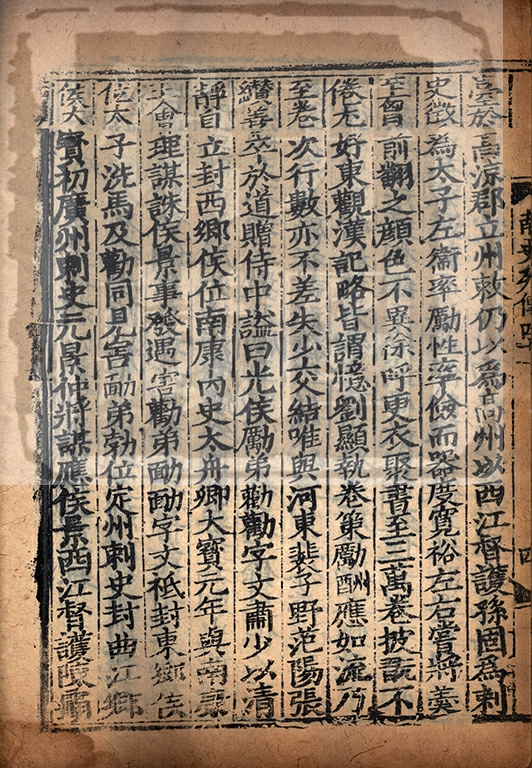 臺於高涼郡立州敕仍以爲高州以西江督護孫固爲刺
史徵爲太子左衞率勵性率儉而器度寬裕左右嘗將羹
至胷前翻之顏色不異徐呼更衣聚書至三萬卷披翫不
倦尤好東觀漢記略皆謂憶劉顯執卷策勵酬應如流乃
至卷次行數亦不差失少交結唯與河東裴子野范陽張
纘善卒於道贈侍中謚曰光侯勵弟勸勸字文肅少以清
靜自立封西鄉侯位南康內史太舟卿大寶元年與南康
王會理謀誅侯景事發遇害勸弟勔勔字文祗封東鄉侯
位太子洗馬及勸同見害勔弟勃位定州刺史封曲江鄉
侯大寶初廣州刺史元景仲將謀應侯景西江督護陳霸